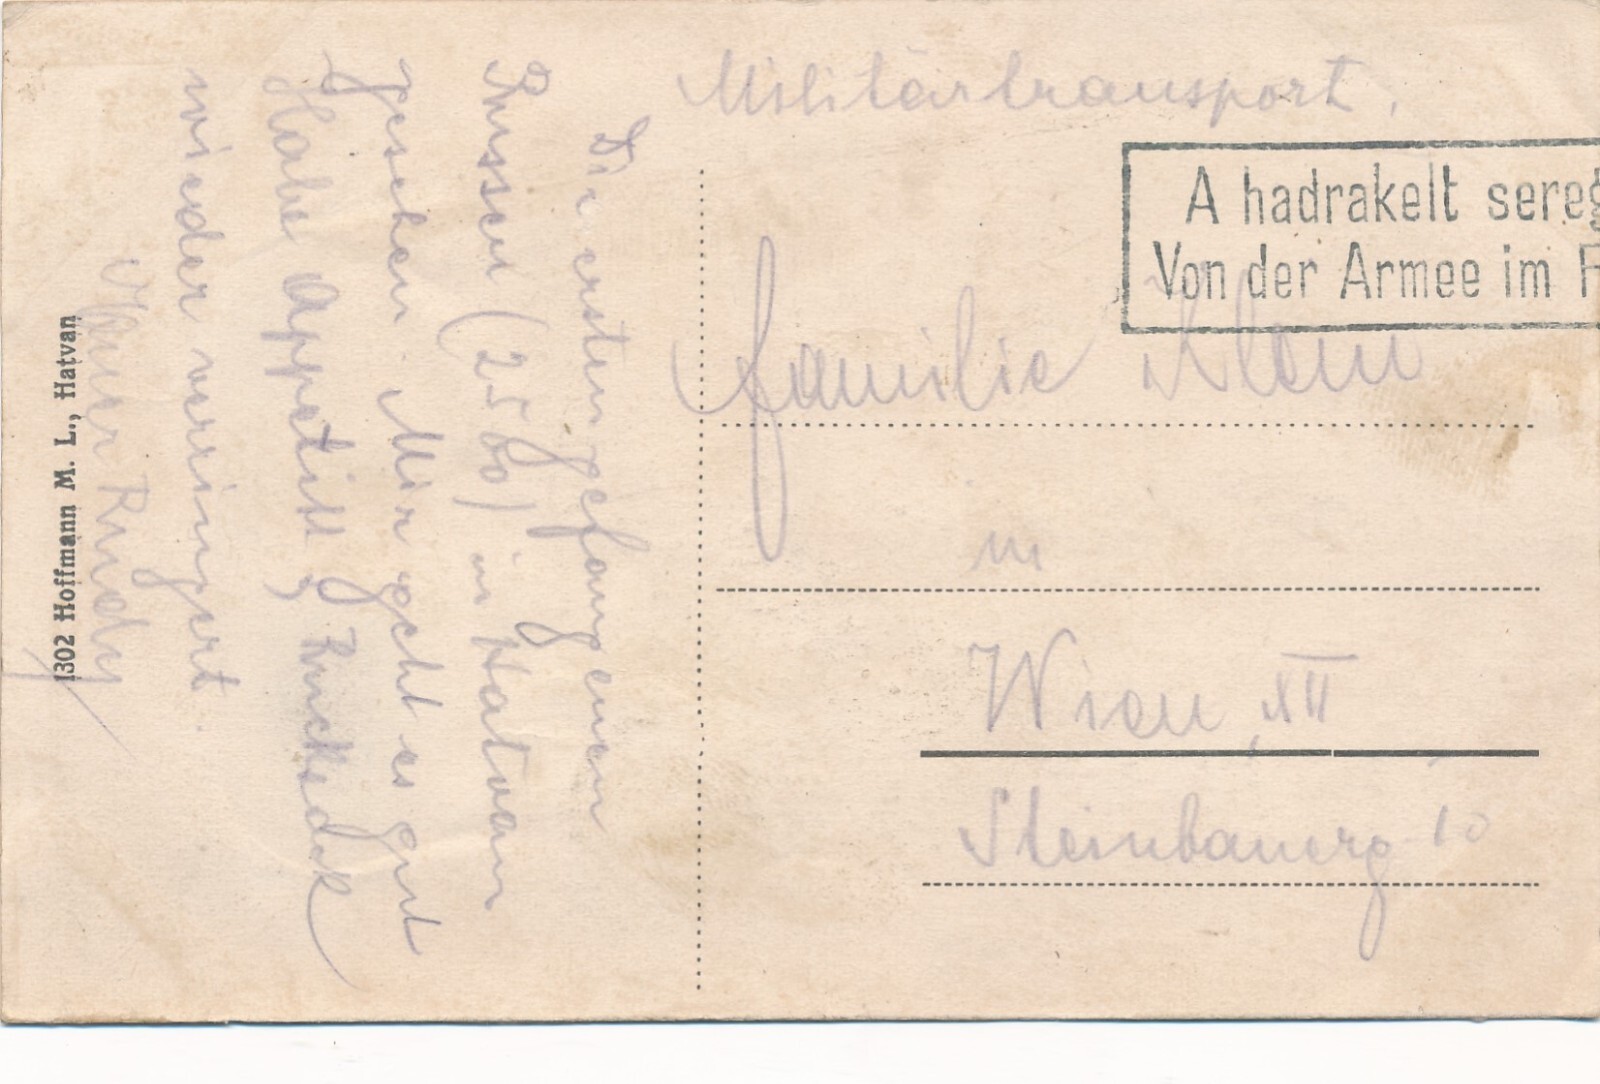 Militärtransport.
A hadrakelt sereg
Von der Armee im F
Familie Klein
in
Wien, XII
Steinbauerg 10
Die ersten gefangenen
Russen (2500) in Hatvan
gesehen. Mir geht es gut
Habe Appetitt, Rucksack
wieder verringert.
Euer Rudy
1302 Hoffmann M. L., Hatvan